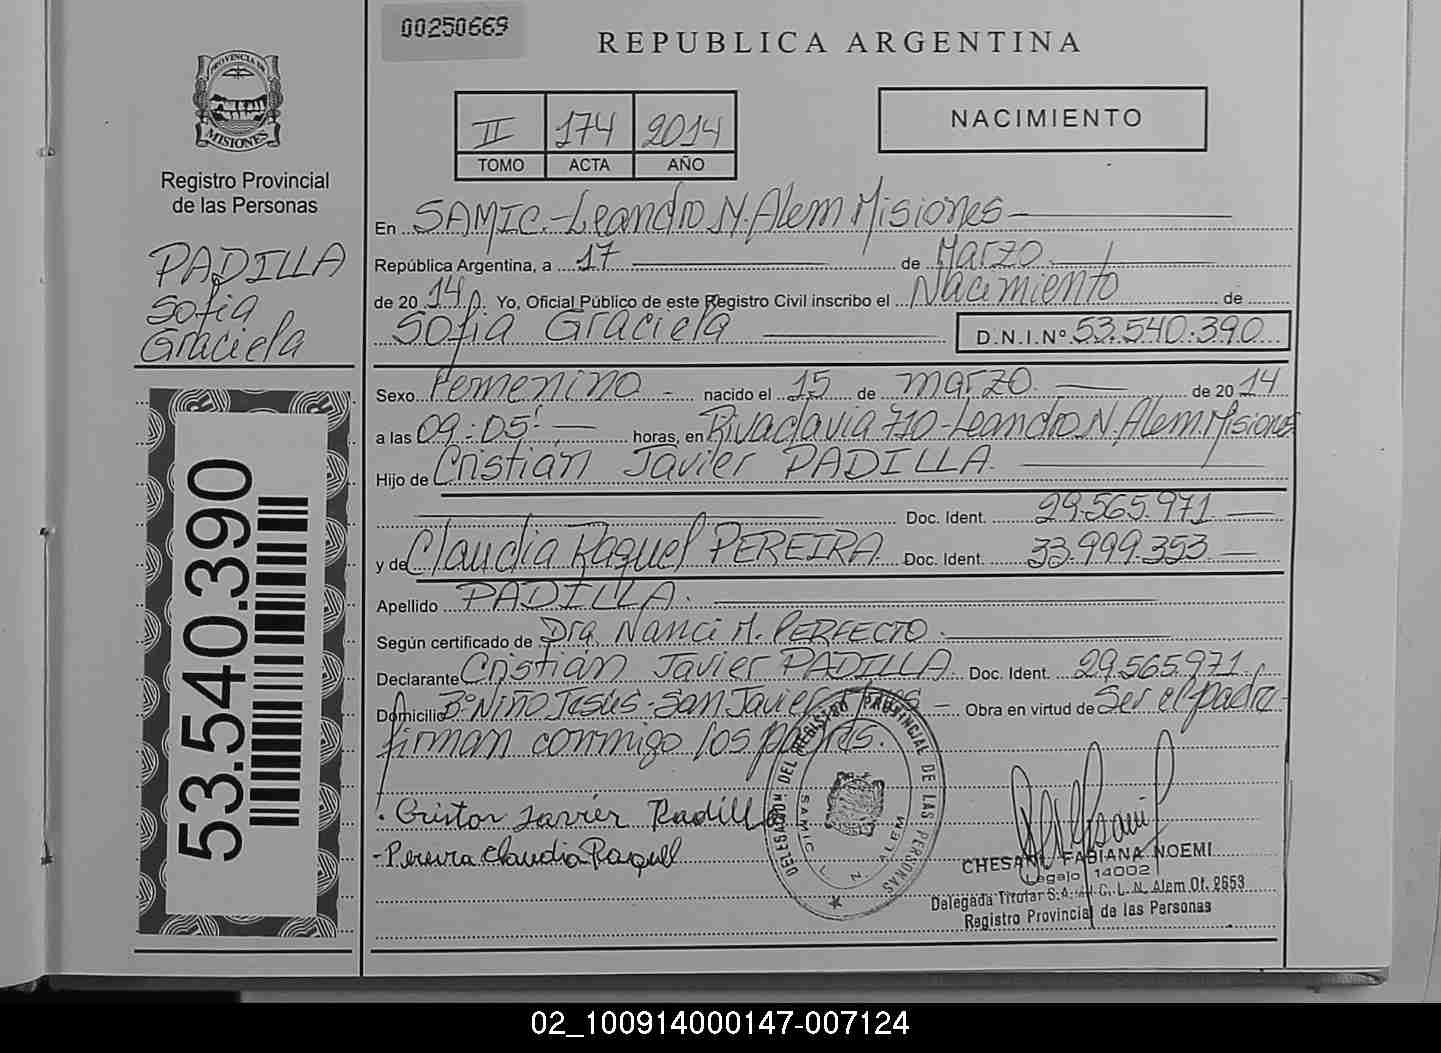 00250669
REPUBLICA ARGENTINA
PROVINCIA DE
MISIONES
Registro Provincial
de las Personas
II 174 2014
TOMO ACTA AÑO
NACIMIENTO
PADILLA
Sofia
Graciela
En SAMIC.-Leandro N. Alem Misiones
República Argentina, a 17 de Marzo
de 2014. Yo, Oficial Público de este Registro Civil inscribo el Nacimiento de
Sofia Graciela D.N.I.Nº 53.540.390
Sexo Femenino - nacido el 15 de marzo. de 2014
a las 09:05 horas, en Rivadavia 710-Leandro N. Alem. Misiones
Hijo de Cristian Javier PADILLA.
Doc. Ident. 29.565.971
y de Claudia Raquel PEREIRA Doc. Ident. 33.999.353
Apellido PADILLA.
Según certificado de Dra. Nanci M. PERFECTO.
Declarante Cristian Javier PADILLA. Doc. Ident. 29.565.971
Domicilio Bº Niño Jesús - San Javier - Obra en virtud de Ser el padre -
firman conmigo los padres.
53.540.390
Javier Padilla
-Pereira Claudia Raquel
DELEGACION DEL REGISTRO PROVINCIAL DE LAS PERSONAS
SAMIC L. N. ALEM
CHESANI FABIANA NOEMI
Legajo 14002
Delegada Titular S.A.M.I.C. L. N. Alem Of. 2653
Registro Provincial de las Personas
02_100914000147-007124